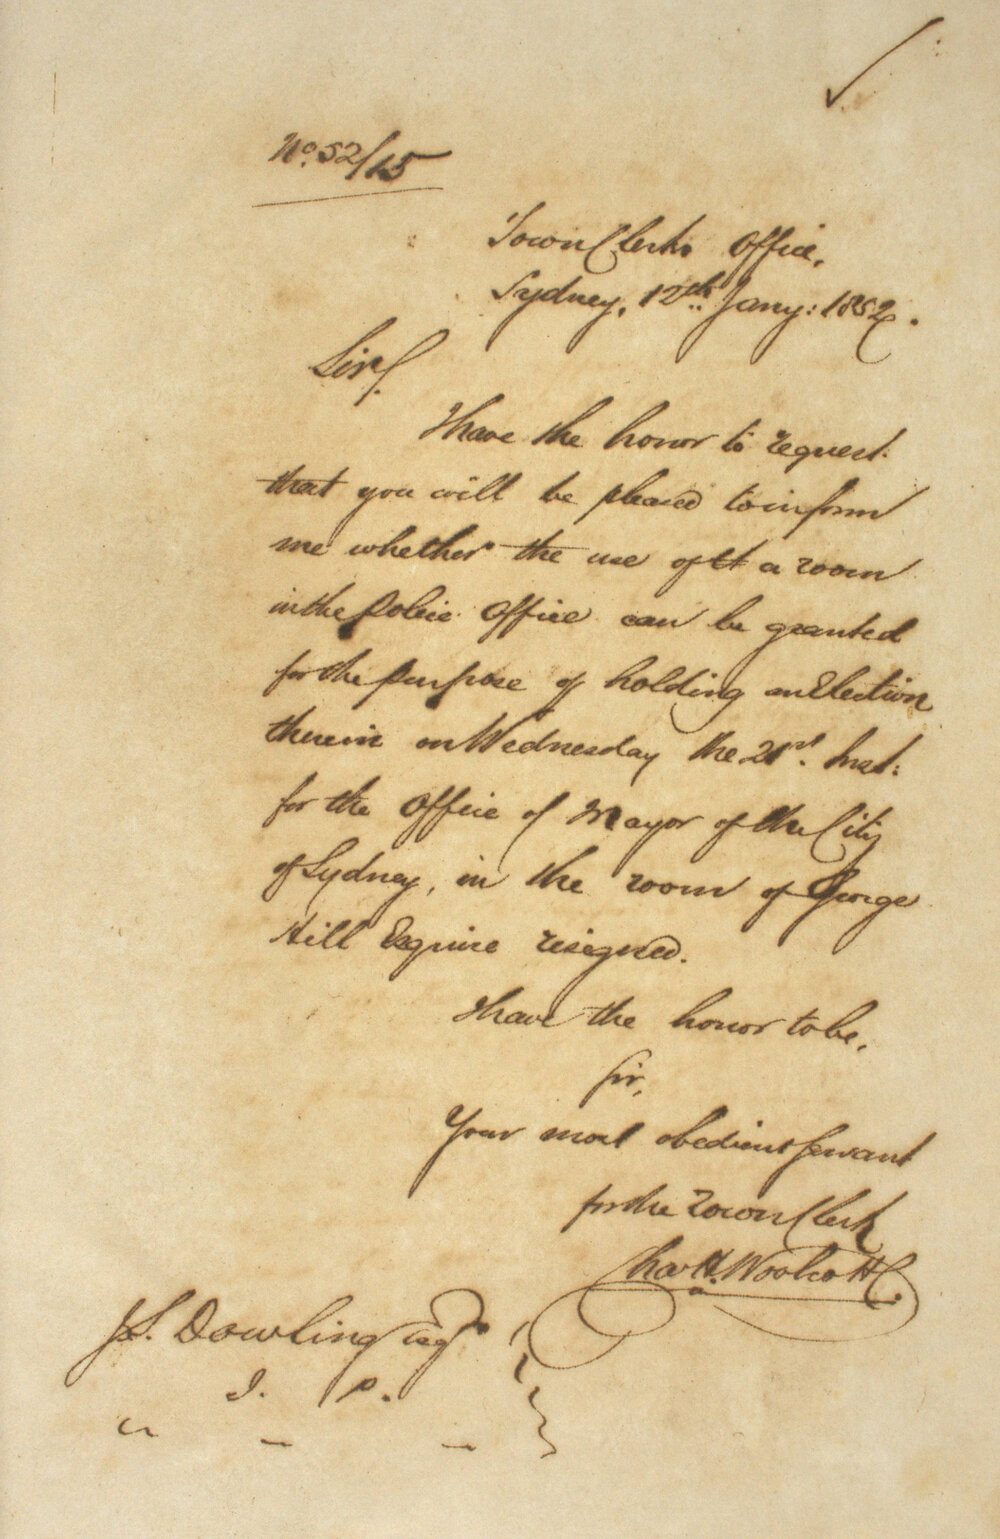 No. 52/15
Town Clerks Office,
Sydney, 12th Jany: 1852.
Sir,
I have the honor to request
that you will be pleased to inform
me whether the use of a room
in the Police Office can be granted
for the purpose of holding an Election
therein on Wednesday the 21st. Inst:
for the Office of Mayor of the City
of Sydney, in the room of George
Hill Esquire resigned.
I have the honor to be,
Sir,
Your most obedient Servant
for the Town Clerk
Chas H. Woolcott
J.S. Dowling Esqr
J. P.